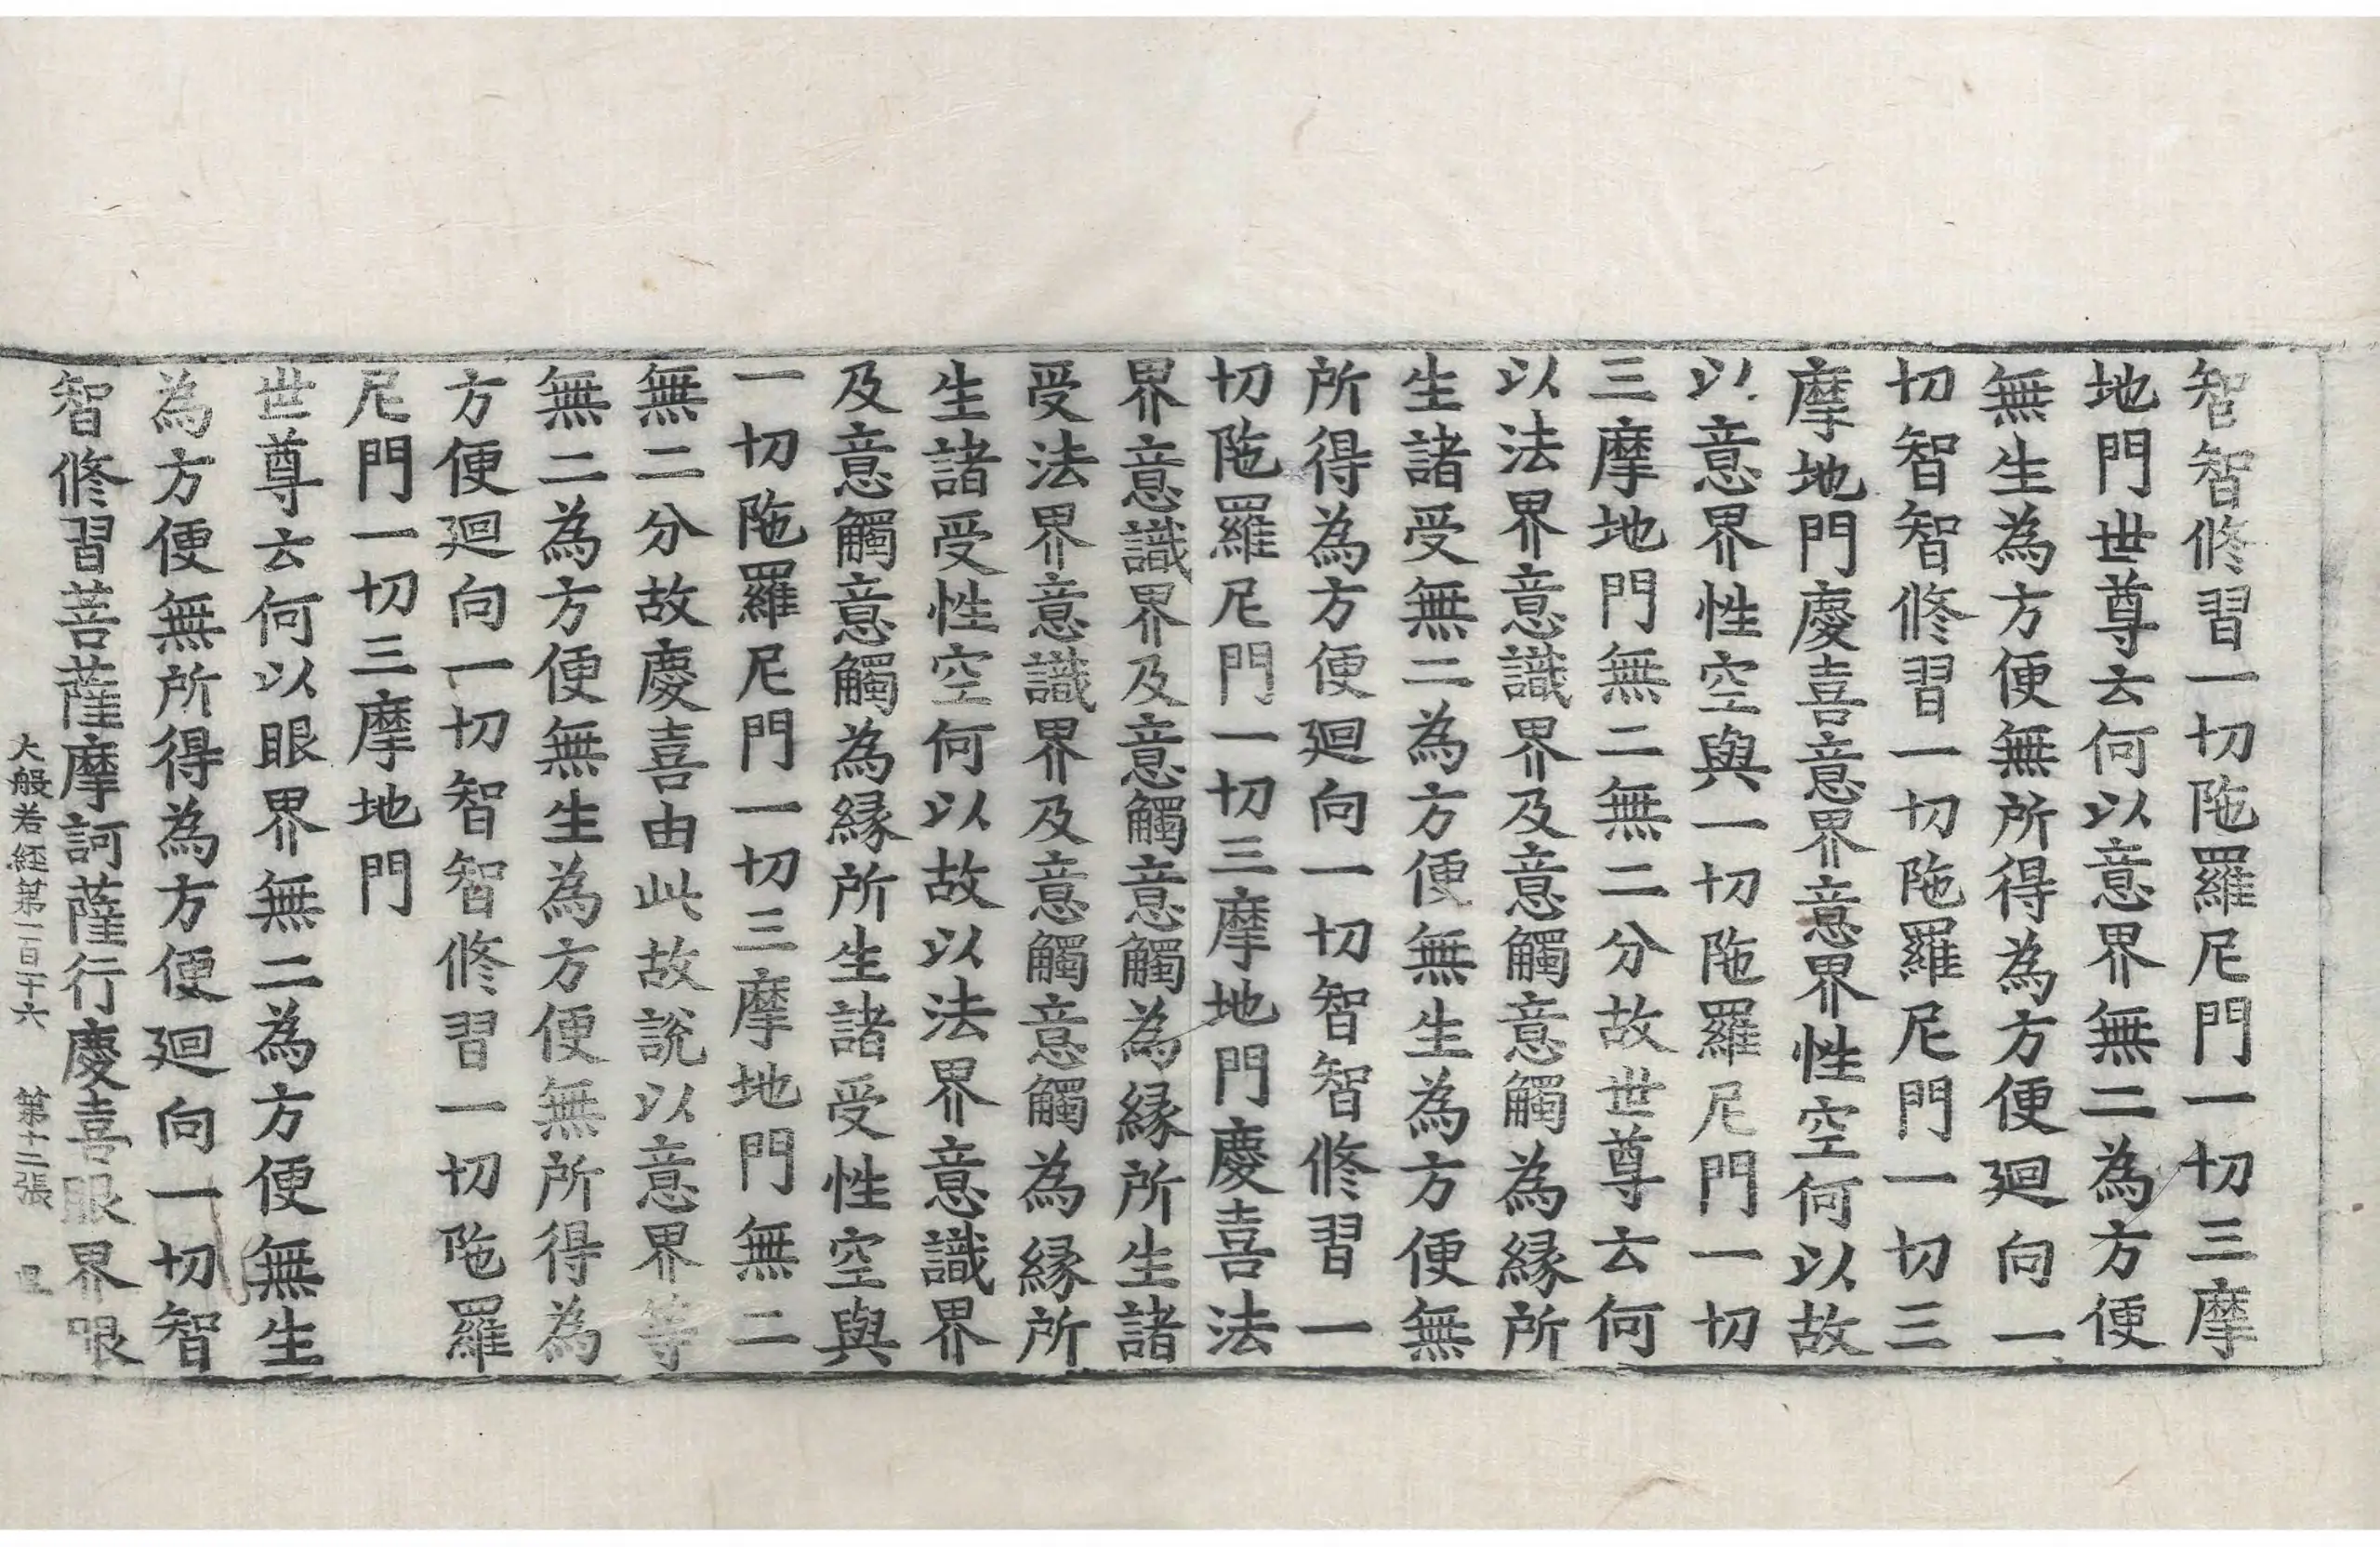 智智修習一切陁羅尼門一切三摩
地門世尊云何以意界無二為方便
無生為方便無所得為方便廻向一
切智智修習一切陁羅尼門一切三
摩地門慶喜意界意界性空何以故
以意界性空與一切陁羅尼門一切
三摩地門無二無二分故世尊云何
以法界意識界及意觸意觸為縁所
生諸受無二為方便無生為方便無
所得為方便廻向一切智智修習一
切陁羅尼門一切三摩地門慶喜法
界意識界及意觸意觸為縁所生諸
受法界意識界及意觸意觸為縁所
生諸受性空何以故以法界意識界
及意觸意觸為縁所生諸受性空與
一切陁羅尼門一切三摩地門無二
無二分故慶喜由此故說以意界等
無二為方便無生為方便無所得為
方便廻向一切智智修習一切陁羅
尼門一切三摩地門
世尊云何以眼界無二為方便無生
為方便無所得為方便廻向一切智
智修習菩薩摩訶薩行慶喜眼界眼
大般若經第一百十六 第十二張